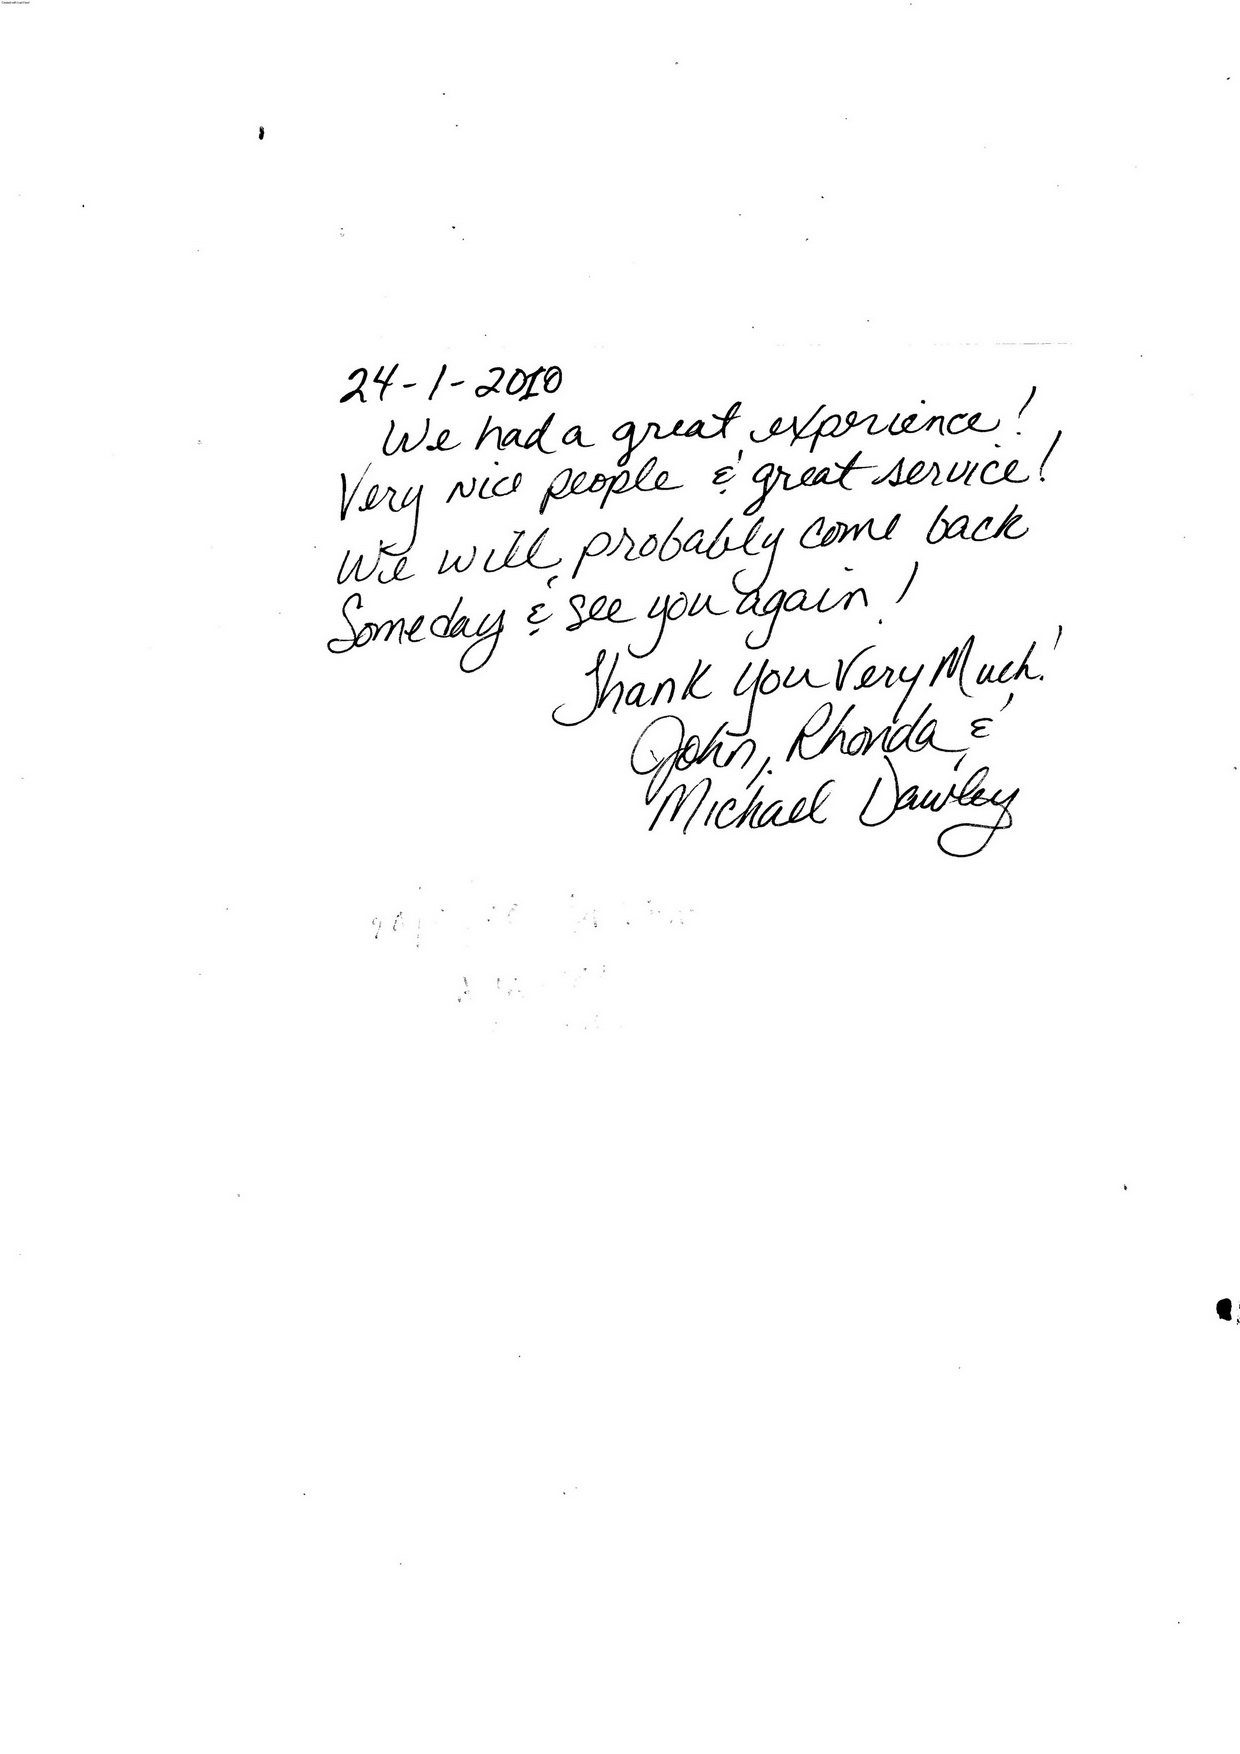 24-1-2010
We had a great experience!
Very nice people & great service!
We will probably come back
Someday & see you again!
Thank you Very Much!
John, Rhonda &
Michael Dawley